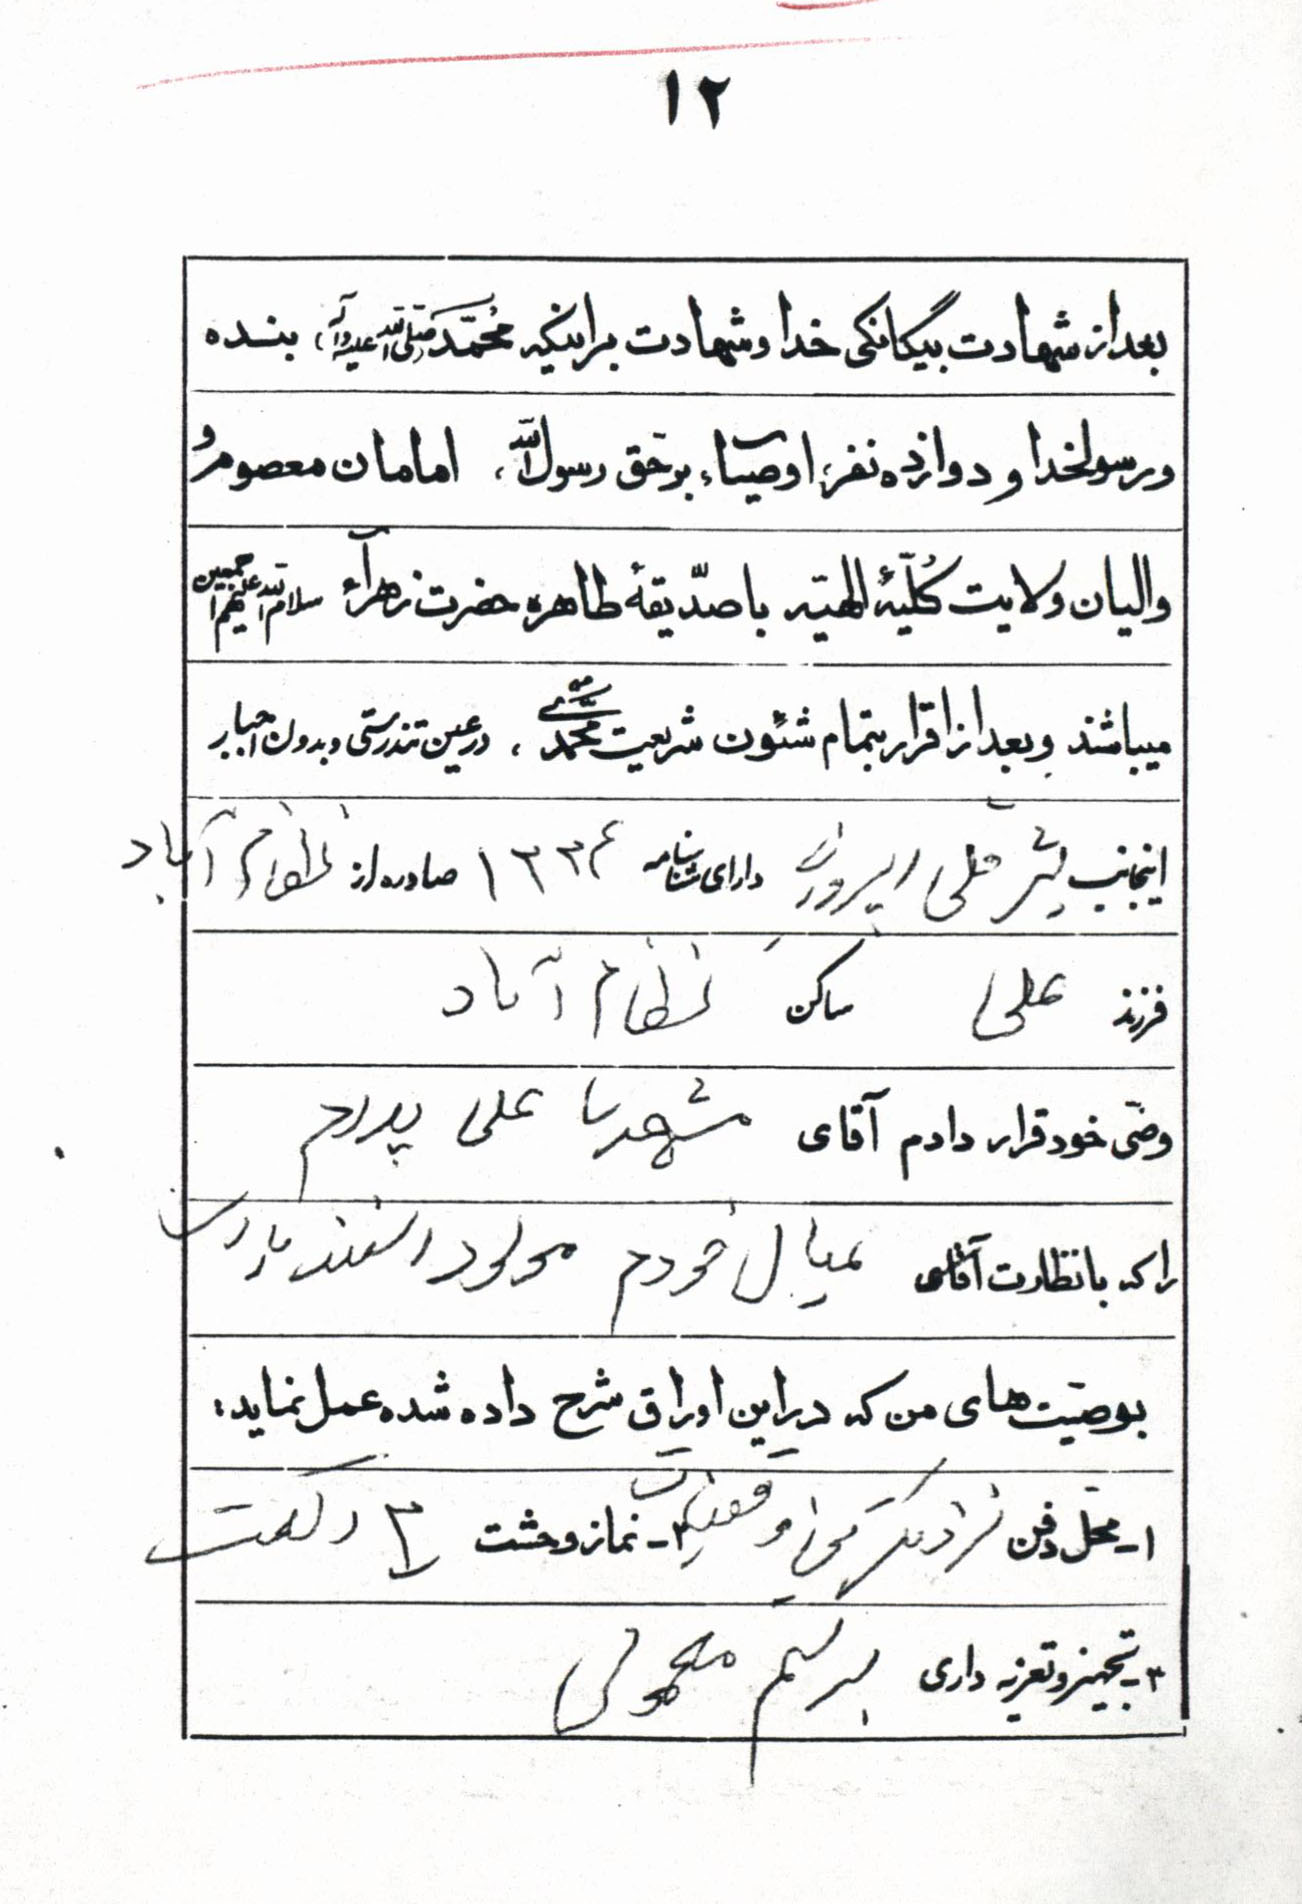 ۱۲
بعد از شهادت بیگانگی خدا و شهادت براینکه محمّد (صلی الله علیه وآله) بنده
و رسولخدا و دوازده نفر، اوصیاء، برحق رسول الله، امامان معصوم و
والیان ولایت کُلّیۀ الهیّه با صدّیقۀ طاهره حضرت زهرآء سلام الله علیهم اجمعین
میباشند و بعد از اقرار بتمام شئون شریعت محمّدی، در عین تندرستی و بدون اجبار
اینجانب علی دارای شناسنامه ۱۳۳۴ صادره از نظام آباد
فرزند علی ساکن نظام آباد
وصّی خود قرار دادم آقای مشهدی علی پدرم
را که با نظارت آقای عیال خودم مولود اسفندیاری
بوصیّت‌های من که در این اوراق شرح داده شده عمل نماید:
۱- محل دفن ۲- نماز وحشت ۳ رکعت
۳- تجهیز و تعزیه داری برسم معمولی